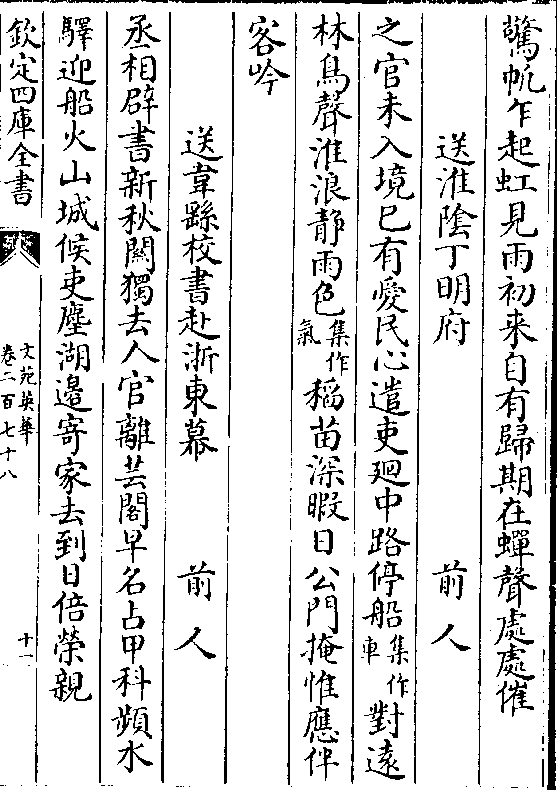 驚帆乍起虹見雨初来自有歸期在蟬聲處處催
送淮陰丁明府 前人
之官未入境已有愛民心遣吏廻中路停船集作車對遠
林鳥聲淮浪静雨色集作氣稻苗深暇日公門掩惟應伴
客吟
送韋繇校書赴浙東幕 前人
丞相辟書新秋闗獨去人官離芸閣早名占甲科頻水
驛迎船火山城候吏塵湖邊寄家去到日倍榮親
欽定四庫全書
文苑英華
卷二百七十八
十一